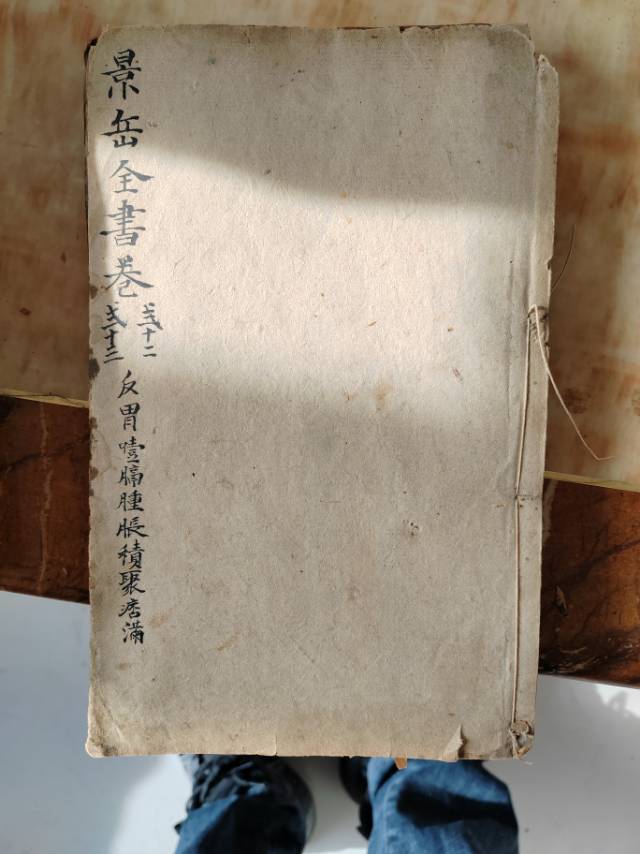 景岳全書卷
弍十二
弍十三
反胃噎膈腫脹積聚痞滿